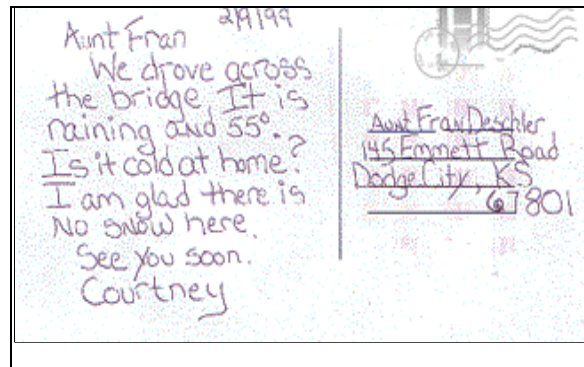 2/9/99
Aunt Fran
We drove across
the bridge. It is
raining and 55°.
Is it cold at home?
I am glad there is
No snow here.
See you soon.
Courtney
Aunt Fran Deschler
145 Emmett Road
Dodge City, KS
67801